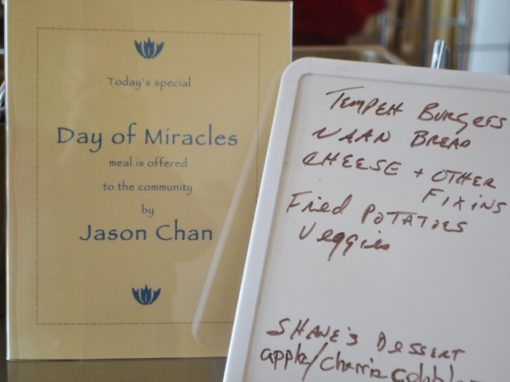 Today's special
Day of Miracles
meal is offered
to the community
by
Jason Chan
TEMPEH BURGERS
NAAN BREAD
CHEESE + OTHER
FIXINS
Fried POTATOES
Veggies
SHANE'S DESSERT
apple/cherrie